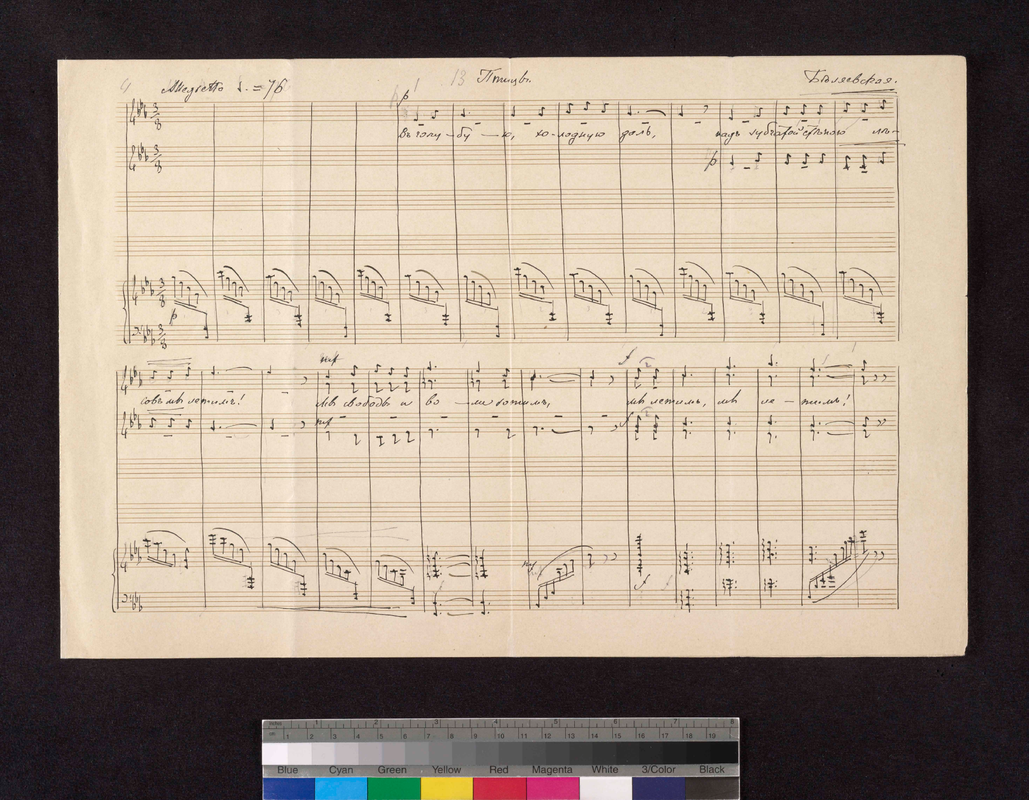 4 Allegretto ♩. = 76 13 Птицы. Бѣляевская.
3/8 p
Въ голу – бу – ю, хо-лодную даль, надъ
3/8 p
3/8 p
3/8
mf f
мы летимъ! Мы свободы и во – ли хотимъ, мы летимъ, мы ле – тимъ!
mf f
mf f
1 2 3 4 5 6 7 8
1 2 3 4 5 6 7 8 9 10 11 12 13 14 15 16 17 18 19
Blue Cyan Green Yellow Red Magenta White 3/Color Black